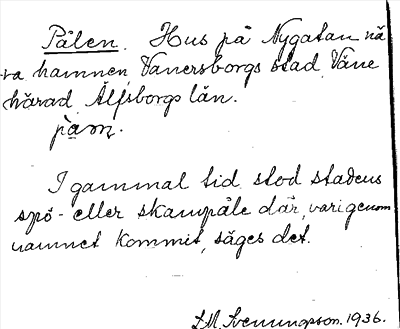 Pålen. Hus på Nygatan nä
ra hamnen, Vänersborgs stad, Väne
härad, Älfsborgs län.
I gammal tid stod stadens
spö- eller skampåle där, varigenom
namnet kommit, säges det.
L.M. Svenungsson. 1936.